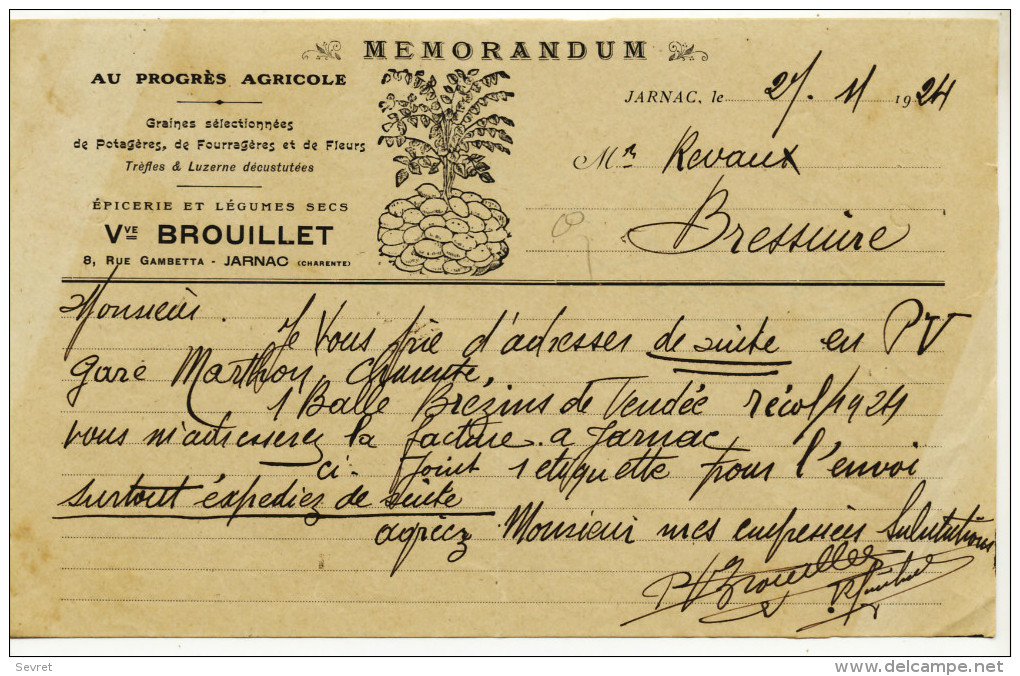 MEMORANDUM
AU PROGRÈS AGRICOLE
Graines sélectionnées
de Potagères, de Fourragères et de Fleurs
Trèfles & Luzerne décustutées
ÉPICERIE ET LÉGUMES SECS
Vve BROUILLET
8, RUE GAMBETTA - JARNAC (CHARENTE)
JARNAC, le 27. 11 1924
Mr Revaux
Bressuire
Monsieur.
Je vous prie d'adresser de suite en PV
gare Marthon, Charente,
1 Balle Brezins de Vendée récol/1924
vous m'adresserez la facture a Jarnac
ci-joint 1 etiquette pour l'envoi
surtout éxpediez de suite
agréez Monsieur mes empressées Salutations
PV Brouillet
Sevret
www.delcampe.net